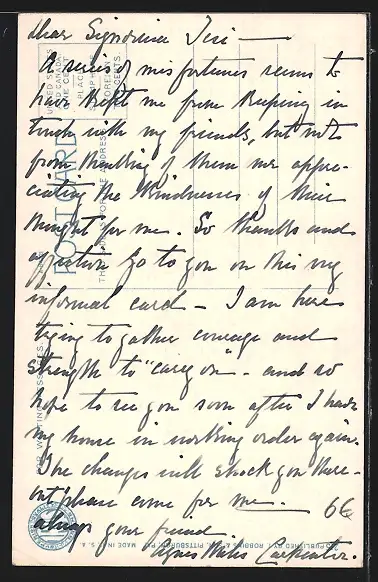 Dear Signorina Tesi —
A series of misfortunes seems to
have kept me from keeping in
touch with my friends, but not
from thinking of them nor appre-
ciating the kindnesses of their
thought for me. So thanks and
affection go to you on this my
informal card — I am here
trying to gather courage and
strength to "carry on" - and so
hope to see you soon after I have
my house in working order again.
The changes will shock you there-
but please come for me —
always your friend
Agnes Miles Carpenter.
6€
POST CARD
THIS SIDE FOR THE ADDRESS
UNITED STATES
AND CANADA
ONE CENT
PLACE
STAMP
FOREIGN
CENTS
PUBLISHED BY I. ROBBINS & SON, PITTSBURGH, PA. MADE IN U.S.A.